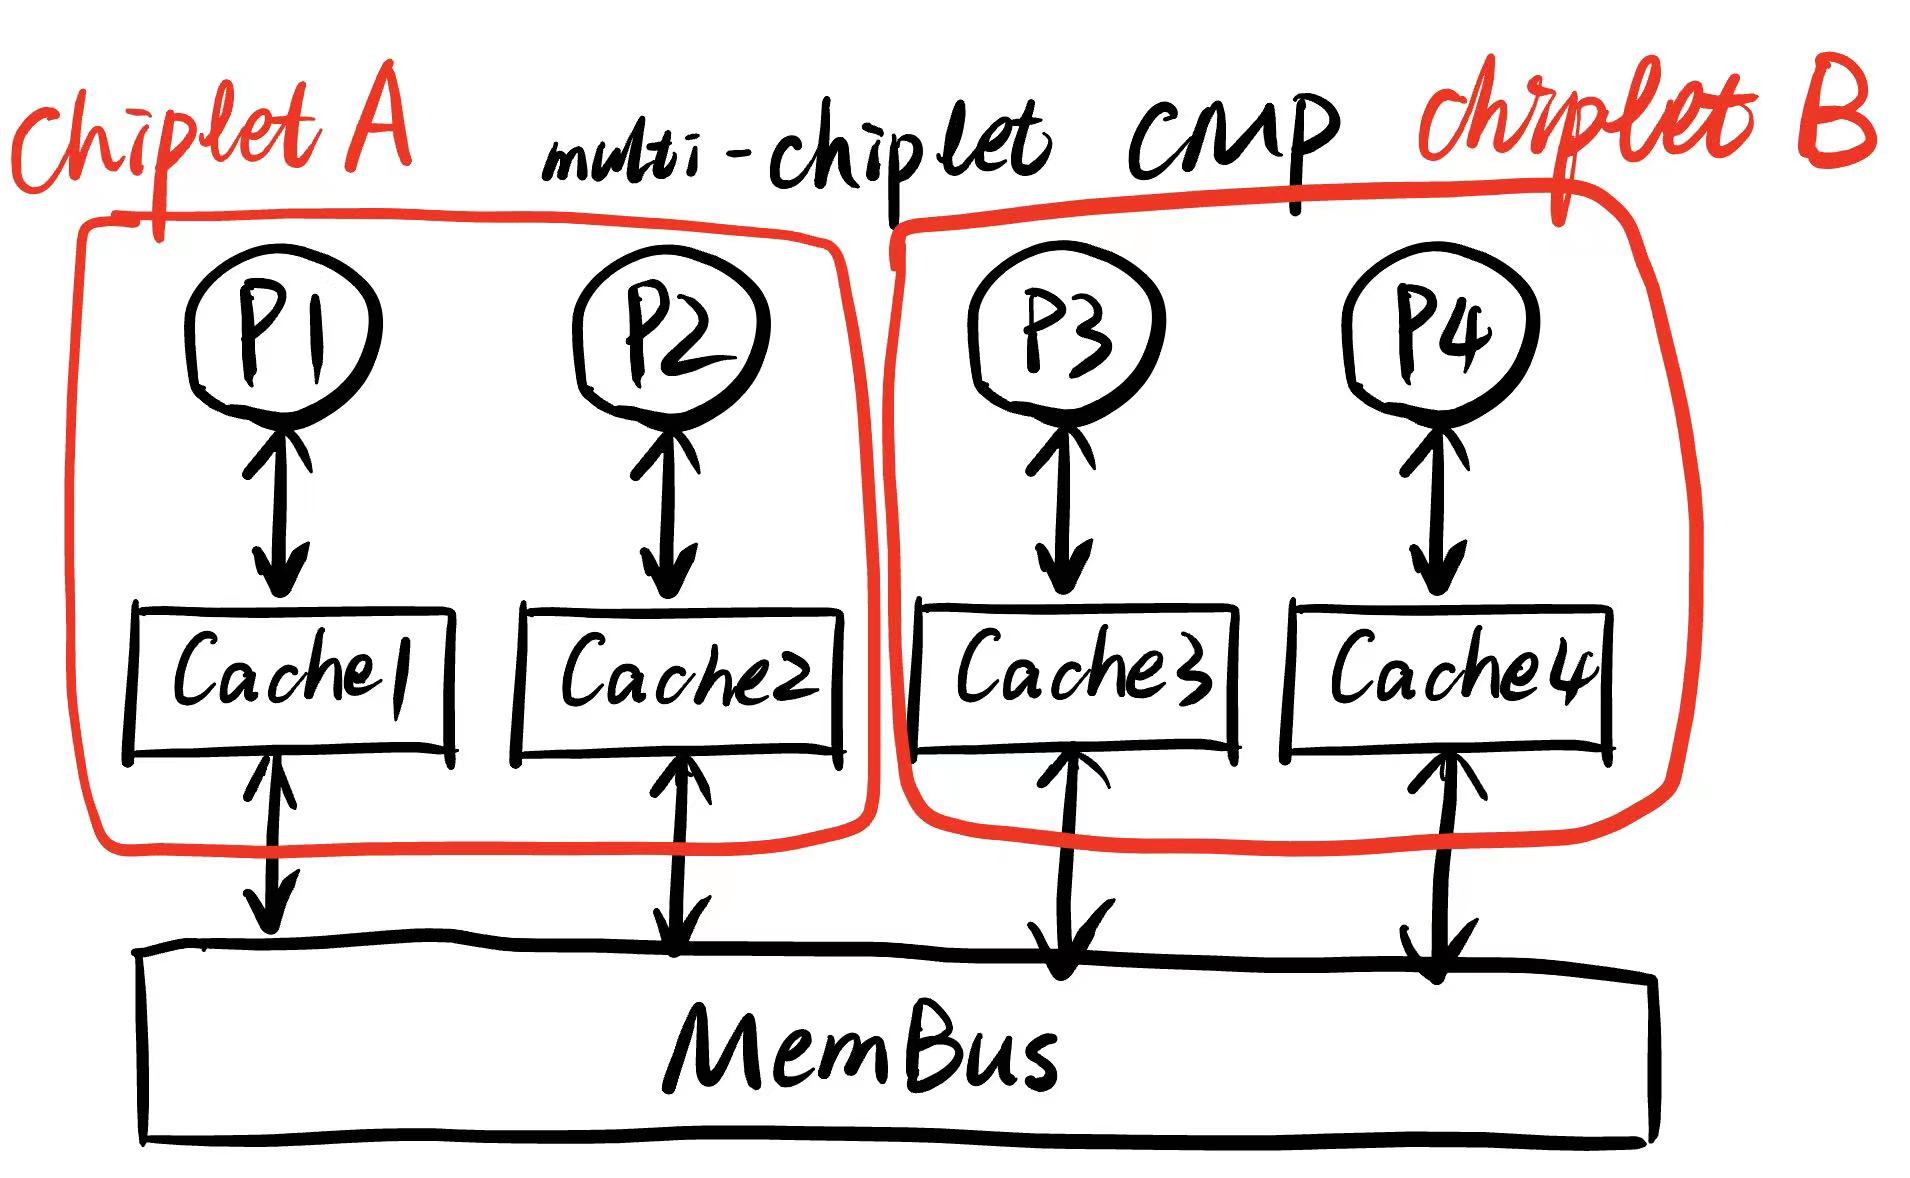 Chiplet A multi-chiplet CMP chiplet B
P1 P2 P3 P4
Cache1 Cache2 Cache3 Cache4
MemBus